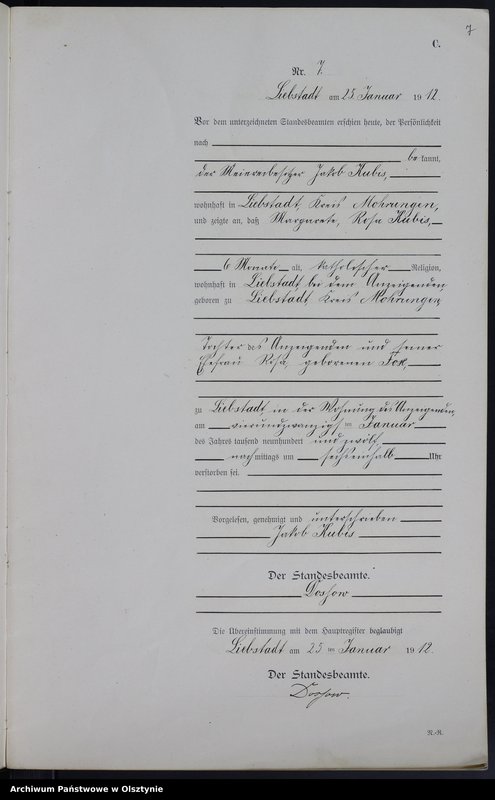 7
C.
Nr. 7.
Liebstadt am 25 Januar 1912.
Vor dem unterzeichneten Standesbeamten erschien heute, der Persönlichkeit
nach
be kannt,
der Meiereibesitzer Jakob Kubis,
wohnhaft in Liebstadt, Kreis Mohrungen,
und zeigte an, daß Margarete, Rosa Kubis,
6 Monate alt, katholischer Religion,
wohnhaft in Liebstadt bei dem Anzeigenden
geboren zu Liebstadt, Kreis Mohrungen
Tochter des Anzeigenden und seiner
Ehefrau Rosa, geborenen
zu Liebstadt in der Wohnung des Anzeigenden,
am vierundzwanzigsten Januar
des Jahres tausend neunhundert und zwölf,
nachmittags um sechseinhalb Uhr
verstorben sei.
Vorgelesen, genehmigt und unterschrieben
Jakob Kubis
Der Standesbeamte.
Die Übereinstimmung mit dem Hauptregister beglaubigt
Liebstadt am 25 ten Januar 1912.
Der Standesbeamte.
N.-R.
Archiwum Państwowe w Olsztynie